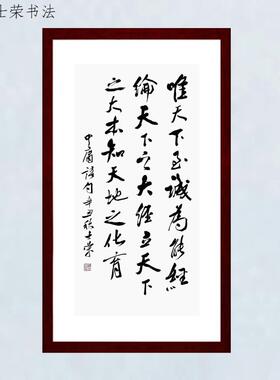 士荣书法
唯天下至诚為能經
綸天下之大經立天下
之大本知天地之化育
中庸语句辛丑秋士荣